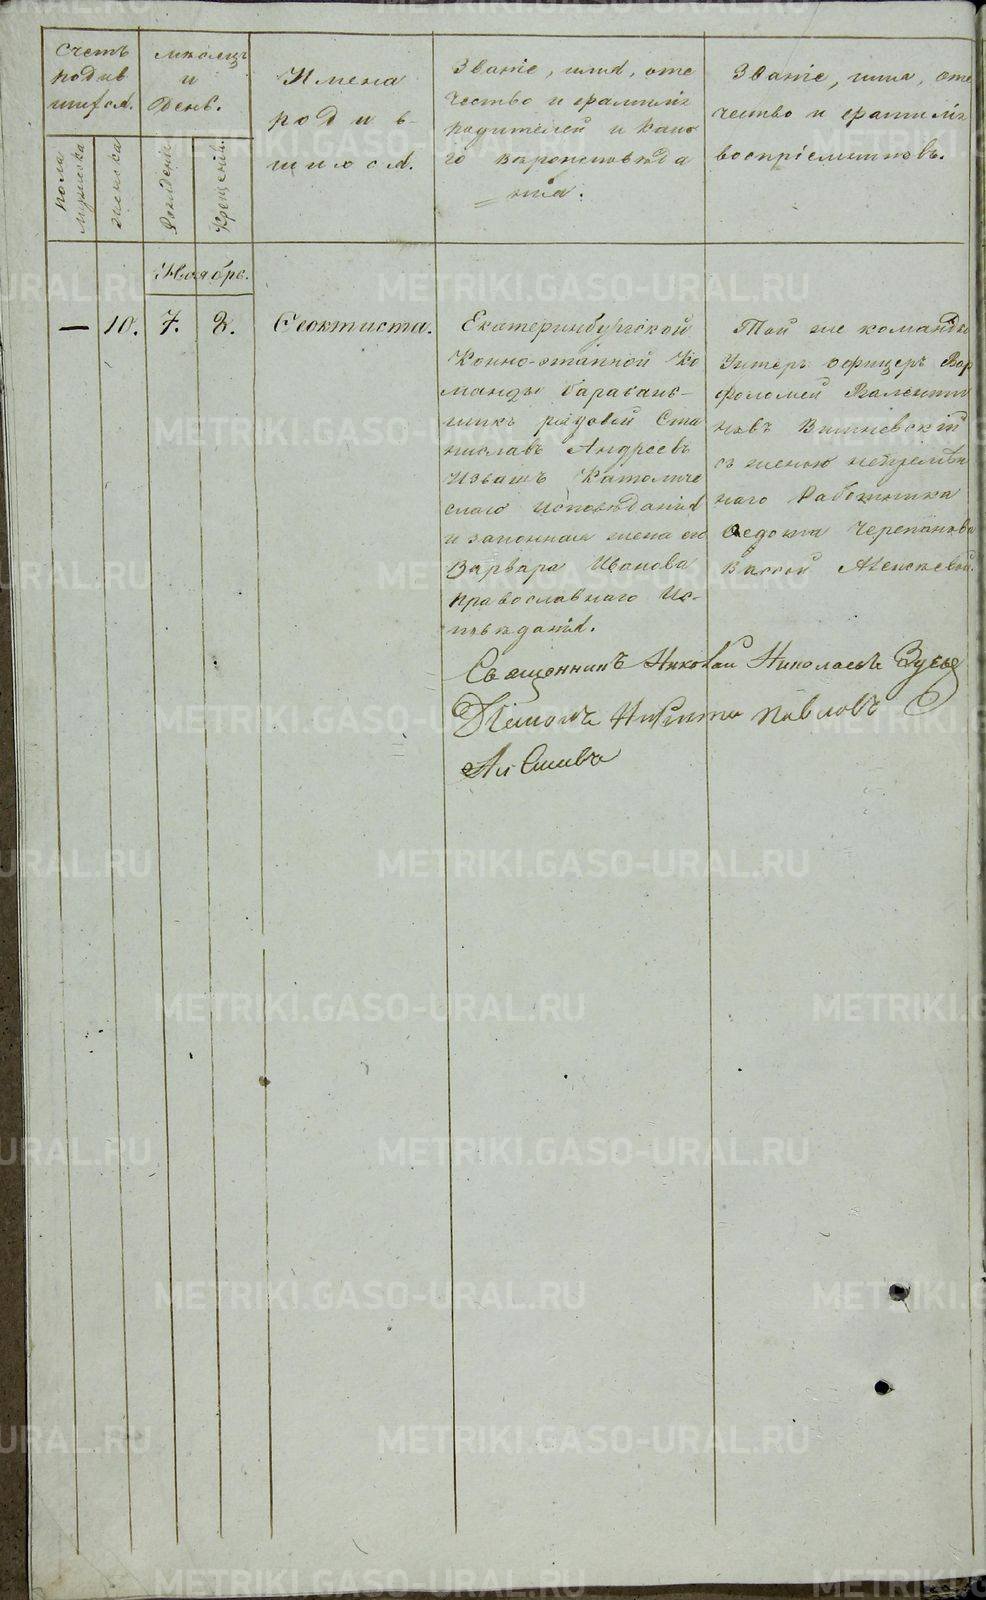 Счетъ
родив
шихся.
мѣсяцъ
и
День.
Имена
родив-
шихся.
Званіе, имя, оте
чество и фамилія
родителей и како
го вѣроисповѣда
нія.
Званіе, имя, оте
чество и фамилія
воспріемниковъ.
пола
мужеска
женска
Рожденія
Крещенія.
Ноября.
— 10. 7. 8. Феоктиста.
Екатеринбургской
Конно-этапной Ко
манды барабан-
щикъ рядовой Ста
ниславъ Андреевъ
Католиче
скаго исповѣданія
и законная жена его
Варвара Иванова
православнаго Ис-
повѣданія.
Той же команды
Унтеръ офицеръ Вар
фоломей Валенти
новъ Вишневскій
съ женою непремѣн
наго работника
Ѳедота Черепанова
Вассой Алексѣевой.
Священникъ Николай Николаевъ
Никита Павловъ
METRIKI.GASO-URAL.RU